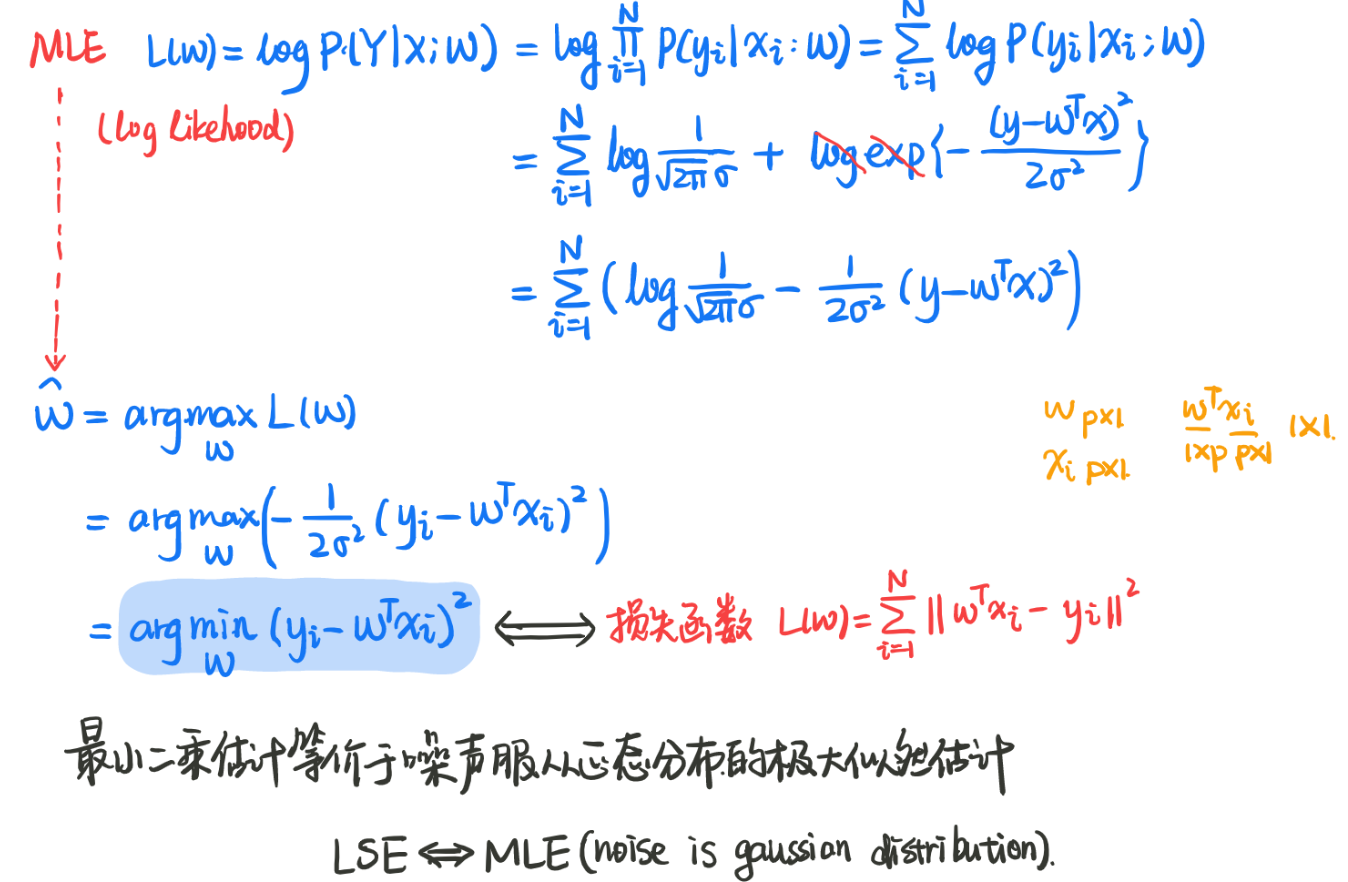 MLE L(w) = log P(Y|X; W) = log ∏_{i=1}^{N} P(y_i|x_i: W) = ∑_{i=1}^{N} log P(y_i|x_i; W)
(log likehood)
= ∑_{i=1}^{N} log 1/(√2π σ) + log exp{-(y-w^T x)^2/(2σ^2)}
= ∑_{i=1}^{N} (log 1/(√2π σ) - 1/(2σ^2) (y-w^T x)^2)
ŵ = argmax_w L(w)
w p×1.
x_i p×1.
w^T x_i 1×1.
1×p p×1
= argmax_w (-1/(2σ^2) (y_i - w^T x_i)^2)
= argmin_w (y_i - w^T x_i)^2 ⟺ 损失函数 L(w) = ∑_{i=1}^{N} ||w^T x_i - y_i||^2
最小二乘估计等价于噪声服从正态分布的极大似然估计
LSE ⟺ MLE (noise is gaussian distribution).